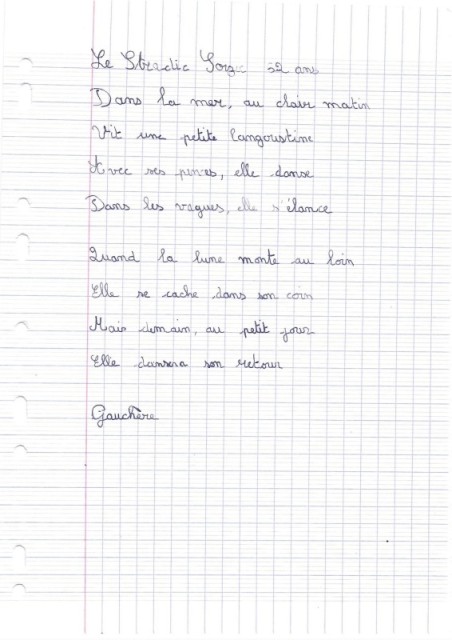 Le Stradic 52 ans
Dans la mer, au clair matin
Vit une petite langoustine
Avec ses pinces, elle danse
Dans les vagues, elle s'élance
Quand la lune monte au loin
Elle se cache dans son coin
Mais demain, au petit jour
Elle dansera son retour
Gauchère